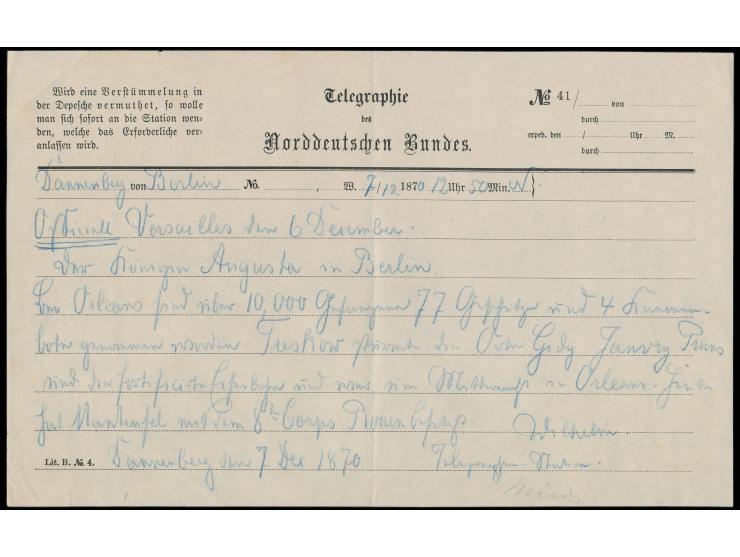 Wird eine Verstümmelung in
der Depesche vermuthet, so wolle
man sich sofort an die Station wen-
den, welche das Erforderliche ver-
anlassen wird.
Telegraphie
des
Norddeutschen Bundes.
№ 41/ von
durch
exped. den / Uhr M.
durch
Dannenberg von Berlin No. , W. 7/12 1870 12 Uhr 50 Min.
Officiell Versailles den 6 December.
Der Königin Augusta in Berlin.
Bei Orleans sind über 10,000 Gefangene 77 Geschütze und 4 Kanonen-
bote genommen worden. Treskow stürmte die Orte Gidy Janvry Prunes
und die fortificirte Eisenbahn und war um Mitternacht in Orleans. Heute
hat Manteufel mit dem 8t Corps Rouen besetzt. Wilhelm.
Lit. B. № 4. Dannenberg den 7 Dec 1870 Telegraphen Station.